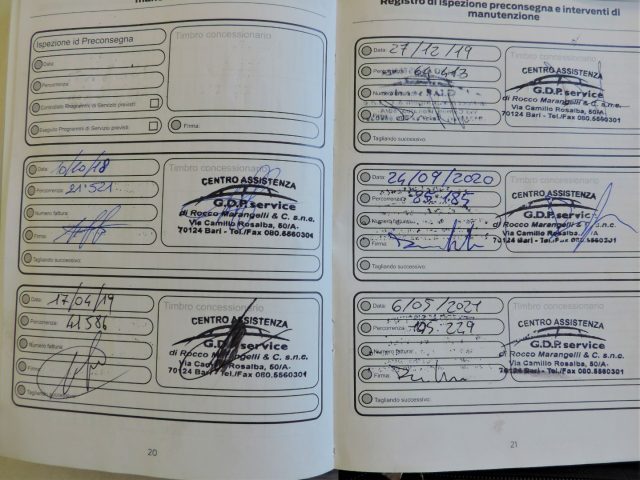 Ispezione id Preconsegna
Timbro concessionario
Data:
Percorrenza:
Controllato Programmi di Servizio previsti
Eseguito Programmi di Servizio previsti
Firma:
Data: 10/10/18
Timbro concessionario
Percorrenza: 21.521
Numero fattura:
Firma:
Tagliando successivo:
CENTRO ASSISTENZA
G.D.P. service
di Rocco Marangelli & C. s.n.c.
Via Camillo Rosalba, 50/A-
70124 Bari - Tel./Fax 080.5560301
Data: 17/04/19
Timbro concessionario
Percorrenza: 41586
Numero fattura:
Firma:
CENTRO ASSISTENZA
G.D.P. service
di Rocco Marangelli & C. s.n.c.
Via Camillo Rosalba, 50/A-
70124 Bari - Tel./Fax 080.5560301
20
Registro di ispezione preconsegna e interventi di
manutenzione
Data: 27/12/19
Tagliando successivo:
CENTRO ASSISTENZA
G.D.P. service
di Rocco Marangelli & C. s.n.c.
Via Camillo Rosalba, 50/A-
70124 Bari - Tel./Fax 080.5560301
Data: 24/09/2020
Percorrenza: 85.185
Numero fattura:
Firma:
Tagliando successivo:
CENTRO ASSISTENZA
G.D.P. service
di Rocco Marangelli & C. s.n.c.
Via Camillo Rosalba, 50/A-
70124 Bari - Tel./Fax 080.5560301
Data: 6/05/2021
Percorrenza: 105.229
Numero fattura:
Firma:
Tagliando successivo:
CENTRO ASSISTENZA
G.D.P. service
di Rocco Marangelli & C. s.n.c.
Via Camillo Rosalba, 50/A-
70124 Bari - Tel./Fax 080.5560301
21